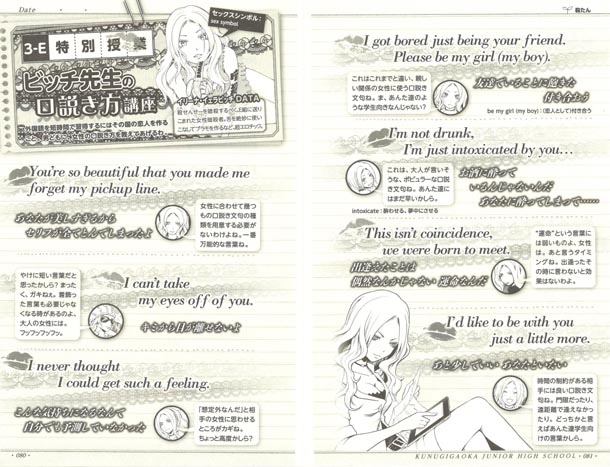 Date
3-E 特別授業
ビッチ先生の
口説き方講座
セックスシンボル:
sex symbol
イリーナ・イェラビッチDATA
You're so beautiful that you made me
forget my pickup line.
あなたが美しすぎるから
セリフが全てとんでしまったよ
女性に合わせて幾つ
もの口説き文句の種
類を用意する必要が
ないわけよね。一番
万能的な言葉ね。
やけに短い言葉だと
思ったかしら?まった
く、ガキねえ。着飾っ
た言葉も必要じゃな
くなる時があるのよ、
大人の女性には。
フッフッフッフッ。
I can't take
my eyes off of you.
キミから目が離せないよ
I never thought
I could get such a feeling.
こんな気持ちになるなんて
自分でも予測していなかった
「想定外なんだ」と相
手の女性に思わせる
ところがカギね。
ちょっと高度かしら?
・080・
殺たん
I got bored just being your friend.
Please be my girl (my boy).
これはこれまでと違い、親し
い関係の女性に使う口説き
文句ね。ま、あんた達のよう
な学生向きなんじゃない?
友達でいることに飽きた
付き合おう
be my girl (my boy):(恋人として)付き合う
I'm not drunk,
I'm just intoxicated by you…
これは、大人が言いそ
うな、ポピュラーな口説
き文句ね。あんた達に
はまだ早いかしら。
お酒に酔って
いるんじゃないんだ
あなたに酔ってしまって……
intoxicate:酔わせる、夢中にさせる
This isn't coincidence,
we were born to meet.
出逢えたことは
偶然なんかじゃない 運命なんだ
"運命"という言葉に
は弱いものよ、女性
は。あと言うタイミ
ングね。出逢ったそ
の時に言わないと効
果はないわよ。
I'd like to be with you
just a little more.
あと少しでいい あなたといたい
時間の制約がある相
手には良い口説き文
句ね。門限だったり、
遠距離で逢えなかっ
たり。どっちかと言
えばあんた達学生向
けの言葉かしら。
KUNUGIGAOKA JUNIOR HIGH SCHOOL ・081・